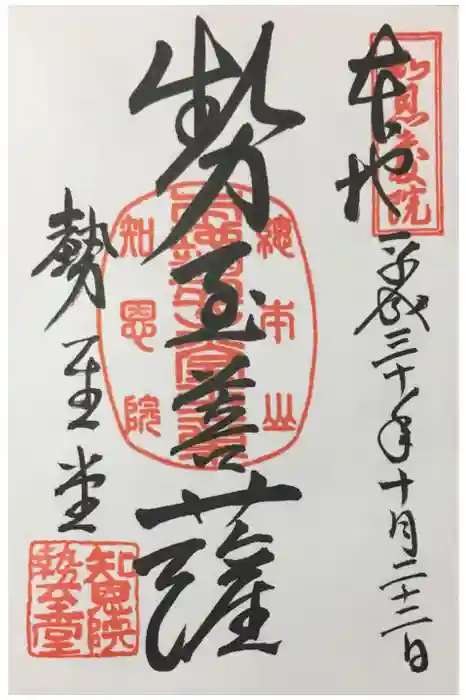 知恩教院
本地
平成三十年十月二十二日
勢至菩薩
總本山
知恩院
勢至堂
知恩院
勢至堂